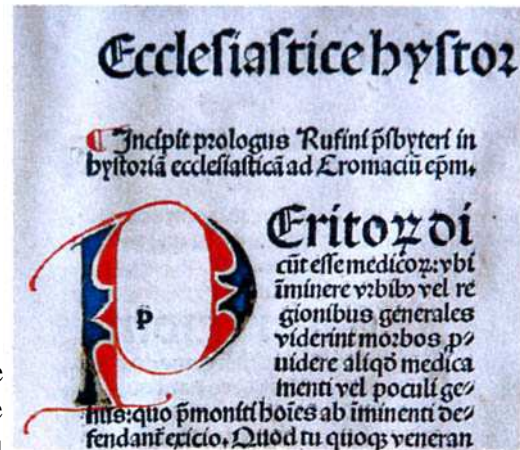 Ecclesiastice hystor
¶ Incipit prologus Rufini p̃sbyteri in
hystoriã ecclesiasticã ad Cromaciũ ep̃m.
P
p̃
Eritoꝝ di
cũt esse medicoꝝ: vbi
ĩminere vrbibꝰ vel re
gionibus generales
viderint morbos p̱
uidere aliqd̃ medica
menti vel poculi ge⸗
nus: quo p̃moniti hoĩes ab ĩminenti de⸗
fendant̃ exicio. Quod tu quoqꝫ veneran
e
e